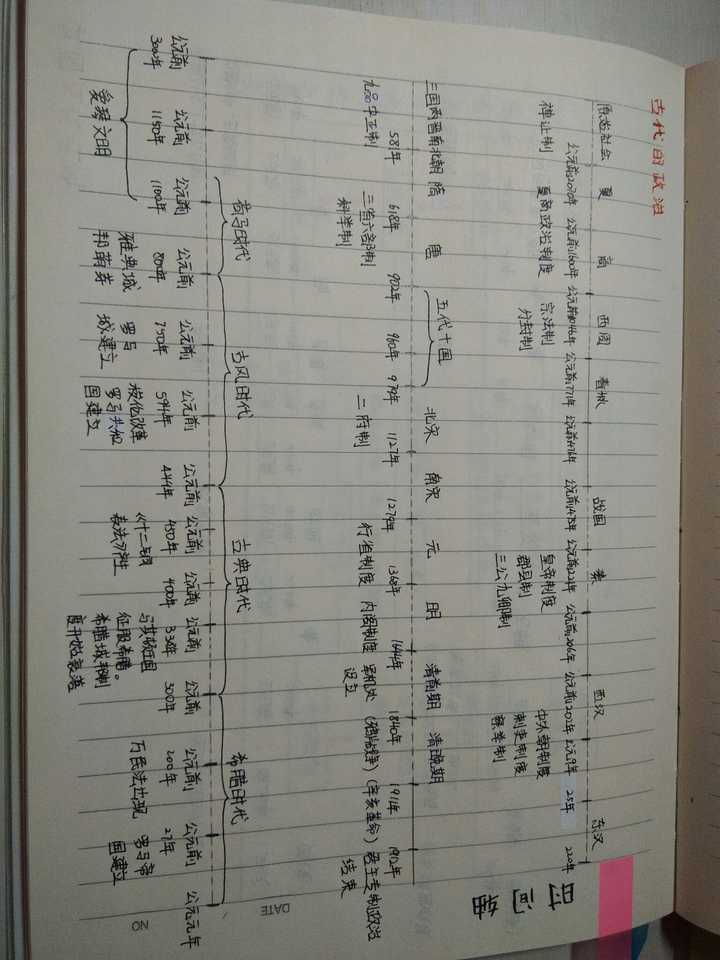 古代的政治
时间轴
原始社会 夏 商 西周 春秋 战国 秦 西汉 东汉
公元前2070年 公元前1600年 公元前1046年 公元前771年 公元前476年 公元前475年 公元前221年 公元前206年 公元前202年 公元9年 25年 220年
禅让制 夏商政治制度 宗法制 皇帝制度 中外朝制度
分封制 郡县制 刺史制度
三公九卿制 察举制
三国两晋南北朝 隋 唐 五代十国 北宋 南宋 元 明 清前期 清晚期
581年 618年 902年 960年 979年 1127年 1279年 1368年 1644年 1840年 1911年 1912年
九品中正制 三省六部制 二府制 行省制度 内阁制度 军机处 (鸦片战争) (辛亥革命) 君主专制政治
科举制 设立 结束
荷马时代 古风时代 古典时代 希腊时代
公元前 公元前 公元前 公元前 公元前 公元前 公元前 公元前 公元前 公元前 公元前 公元前 公元前 公元元年
3000年 1150年 1100年 800年 750年 594年 449年 450年 400年 338年 300年 200年 27年
爱琴文明 雅典城 罗马 梭伦改革 《十二铜 马其顿国 万民法出现 罗马帝
邦萌芽 城建立 罗马共和 表法》产生 征服希腊。 国建立
国建立 希腊城邦制
度开始衰落
DATE
NO